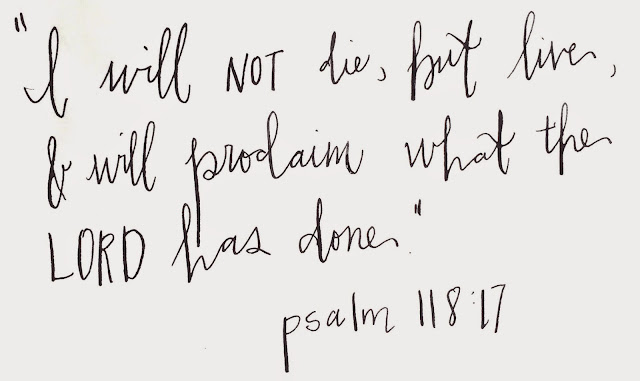 "I will NOT die, but live,
& will proclaim what the
LORD has done."
psalm 118:17